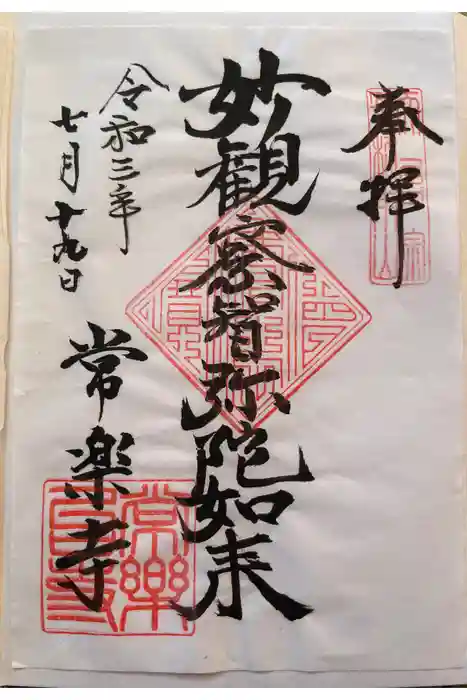 奉拝
妙観察智弥陀如来
令和三年
七月十九日
常楽寺